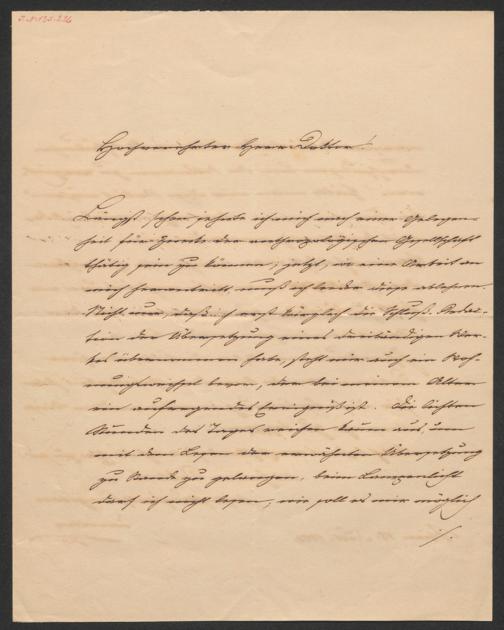 J.N. 125.226
Hochverehrter Herr Doktor!
Längst schon sehnte ich mich nach einer Gelegen-
heit für Zwecke der anthropologischen Gesellschaft
thätig sein zu können; jetzt, wo eine Arbeit an
mich herantritt, muß ich leider diese ablehnen.
Nicht nur, daß ich erst kürzlich die Schluß-Redac-
tion der Übersetzung eines dreibändigen Wer-
kes übernommen habe, steht mir auch ein Woh-
nungswechsel bevor, der bei meinem Alter
ein aufregendes Ereigniß ist. Die lichten
Stunden des Tages reichen kaum aus, um
mit dem Lesen der erwähnten Übersetzung
zu Stande zu gelangen, beim Lampenlicht
darf ich nicht lesen, wie soll es mir möglich
./.